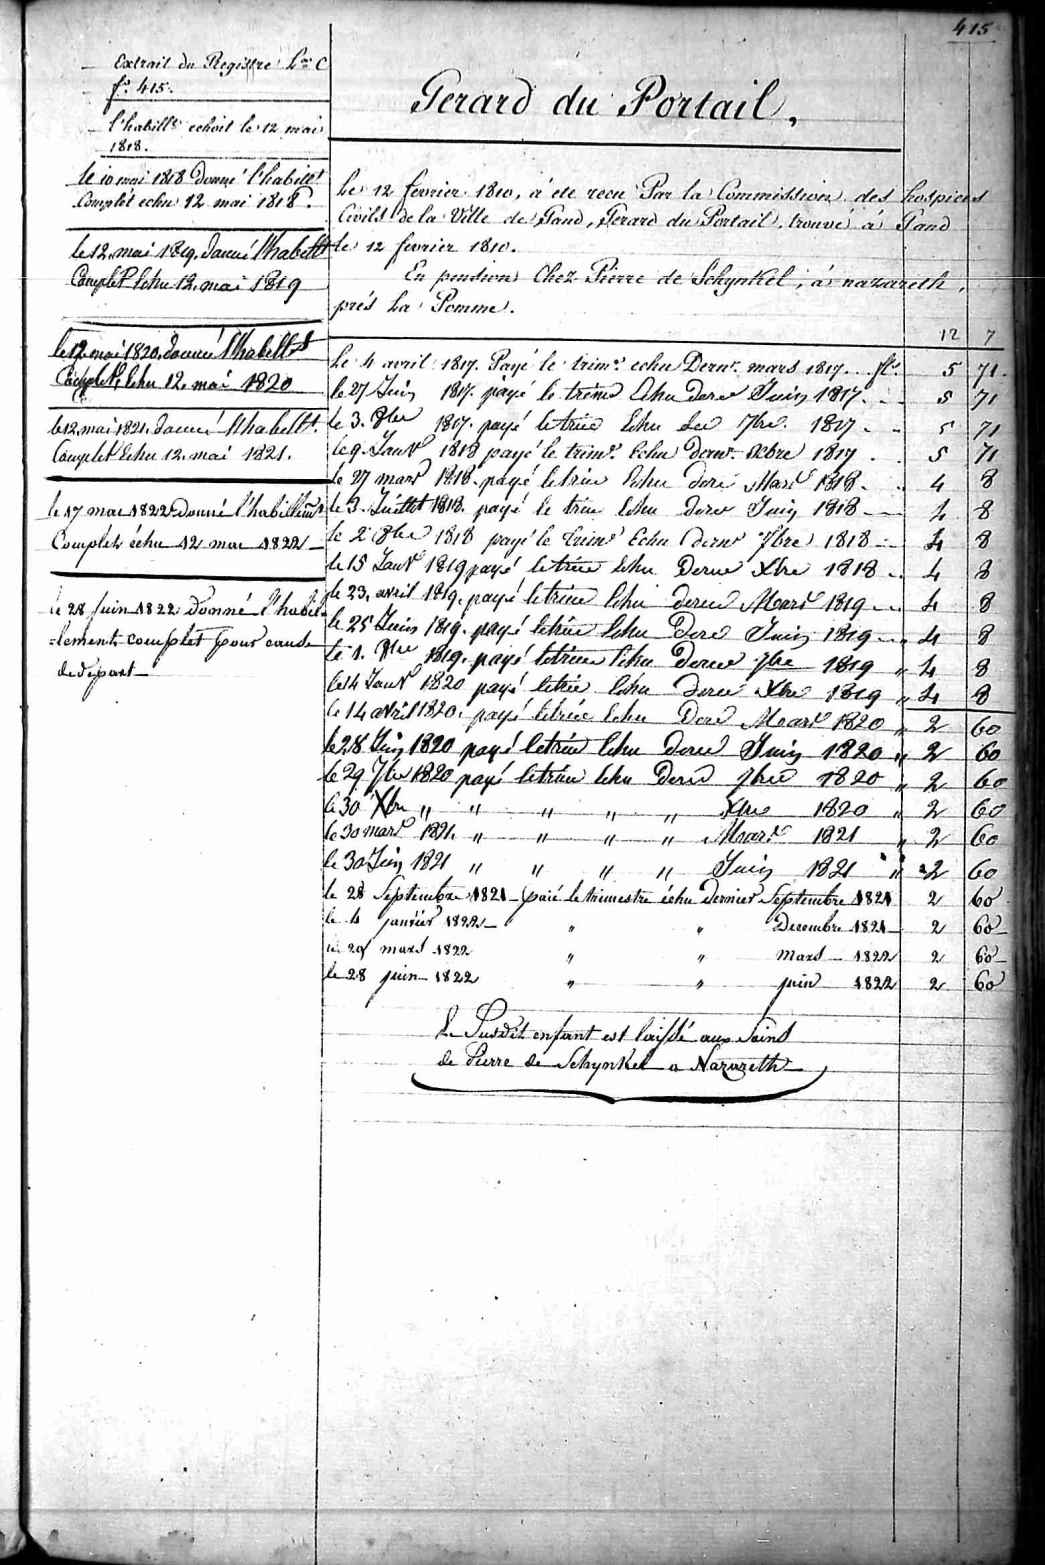 415
Extrait du Registre Lre C
fo. 415.
l'habillt echoit le 12 mai
1818.
le 10 mai 1818 donné l'habillt
Complet echu 12 mai 1818.
le 12. mai 1819. donné l'habillt
Complet Echu 12. mai 1819
le 12. mai 1820. donné l'habillt
Complet, Echu 12. mai 1820
le 12. mai 1821. donné l'habillt.
Complet Echu 12. mai 1821.
le 17 mai 1822 donné l'habillemt
Complet échu 12 mai 1822
le 28 juin 1822 Donné l'habil-
-lement complet pour cause
de départ
Gerard du Portail.
Le 12 fevrier 1810, à été recu Par la Commission des hospices
Civils de la Ville de Gand, Gerard du Portail, trouvé à Gand
le 12 fevrier 1810.
En pension Chez Pierre de Schynkel, à nazareth,
prés La Pomme.
12 7
Le 4 avril 1817. Payé le trime. echu Dernr. mars 1817. fls. 5 71.
le 27 Juin 1817. payé le trime Echu derer Juin 1817. 5 71
le 3. 8bre 1817. payé le trim Echu der 7bre. 1817 5 71
le 9. Janvr 1818 payé le trime. Echu derer. Xbre 1817 5 71
le 27 mars 1818. payé le trim Echu derer Mars 1818. 4 8
le 3. Juillet 1818. payé le trim Echu derer Juin 1818 4 8
le 2 8bre 1818 payé le trime Echu derer 7bre 1818 4 8
le 15 Janvr 1819 payé le trim Echu derer Xbre 1818 4 8
le 23. avril 1819. payé le trim Echu derer Mars 1819 4 8
le 25 Juin 1819. payé le trim Echu derer Juin 1819 " 4 8
le 1. 8bre 1819. payé le trim Echu derer 7bre 1819 " 4 8
le 14 Janvr 1820 payé le trim Echu derer Xbre 1819 " 4 8
le 14 avril 1820. payé le trim Echu derer Mars 1820 " 2 60
le 28 Juin 1820 payé le trim Echu derer Juin 1820 " 2 60
le 29 7bre 1820 payé le trim Echu derer 7bre 1820 " 2 60
le 30 Xbre " " " " " Xbre 1820 " 2 60
le 30 mars 1821. " " " " Mars 1821 " 2 60
le 30 Juin 1821 " " " " Juin 1821 " 2 60
le 28 Septembre 1821 paié le trimestre échu dernier Septembre 1821 2 60
le 4 janvier 1822 " " Decembre 1821 2 60
le 29 mars 1822 " " mars 1822 2 60
le 28 juin 1822 " " juin 1822 2 60
Le Susdit enfant est laissé aux Soins
de Pierre de Schynkel a Nazareth